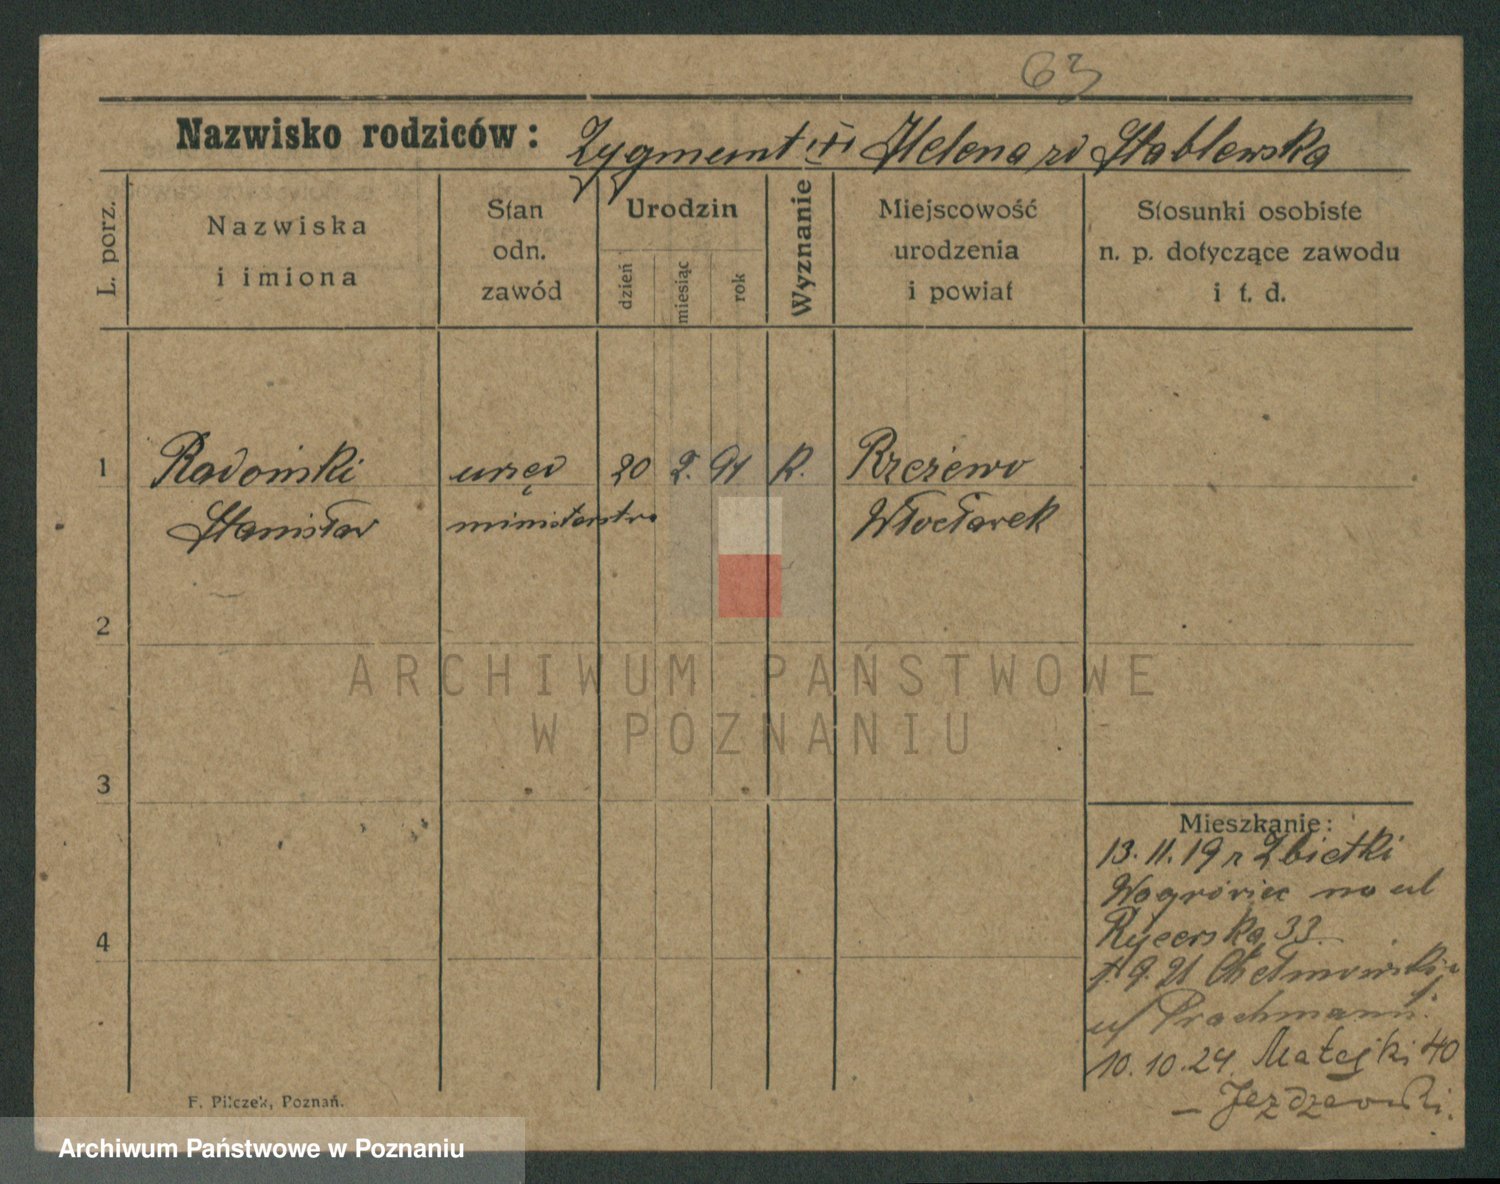 63
Nazwisko rodziców: Zygmunt iti Helena zd Stablewska
L. porz.
Nazwiska i imiona
Stan odn. zawód
Urodzin
dzień
miesiąc
rok
Wyznanie
Miejscowość urodzenia i powiat
Stosunki osobiste n. p. dotyczące zawodu i t. d.
1 Radoński urzęd 20 2. 91 R. Rzeżewo
Stanisław ministerstwa Włocławek
2
ARCHIWUM PAŃSTWOWE
W POZNANIU
3
4
Mieszkanie:
13. 11. 19 z Zbietki
Wągrówiec na ul
Rycerska 33
9. 21 Chełmoński
ul
10. 10. 24. Matejki 40
– Jezdzewski.
F. Pilczek, Poznań.
Archiwum Państwowe w Poznaniu